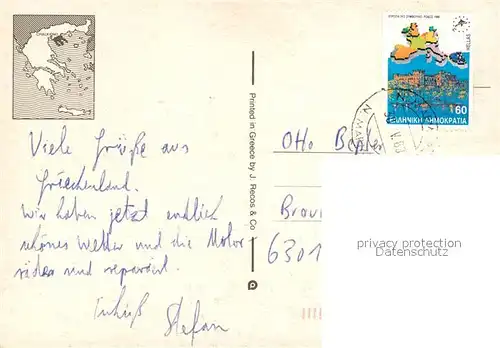 Viele Grüße aus
Griechenland.
Wir haben jetzt endlich
schönes Wetter und die Motor-
räder sind repariert.
Stefan
Printed in Greece by J. Recos & Co
Otto
6301
HELLAS
60
ΕΛΛΗΝΙΚΗ ΔΗΜΟΚΡΑΤΙΑ
privacy protection
Datenschutz